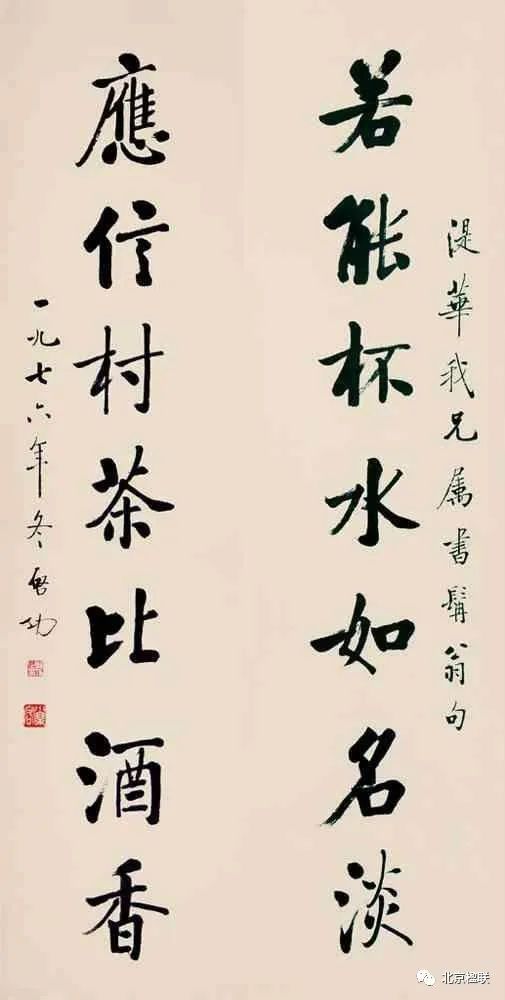 湜華我兄属書髯翁句
若能杯水如名淡
應信村茶比酒香
一九七六年冬啓功
北京楹联